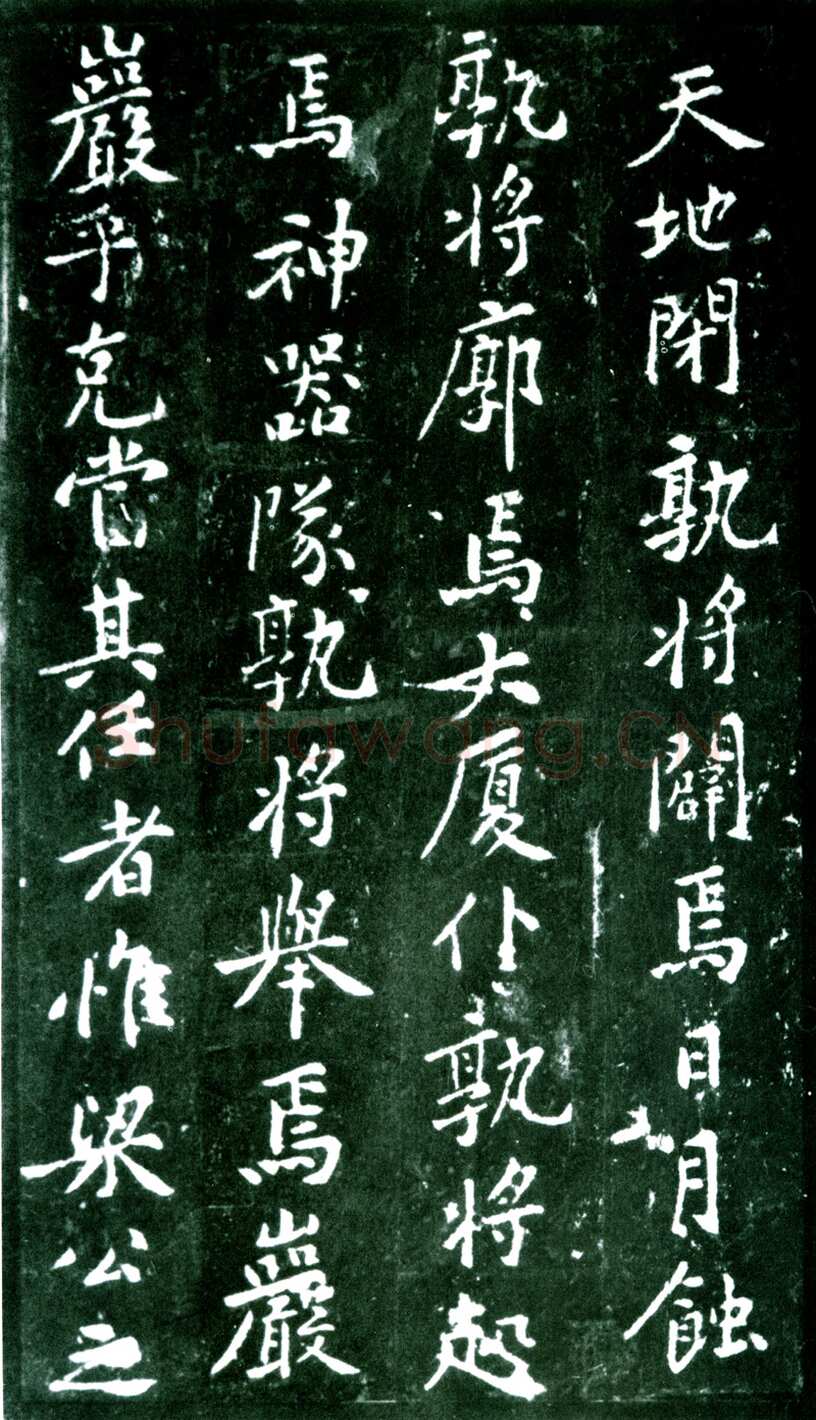 天地閉孰將闢焉日月蝕
孰將廓焉大厦仆孰將起
焉神器隊孰將舉焉巖
巖乎克當其任者惟梁公之
Shufawang.CN